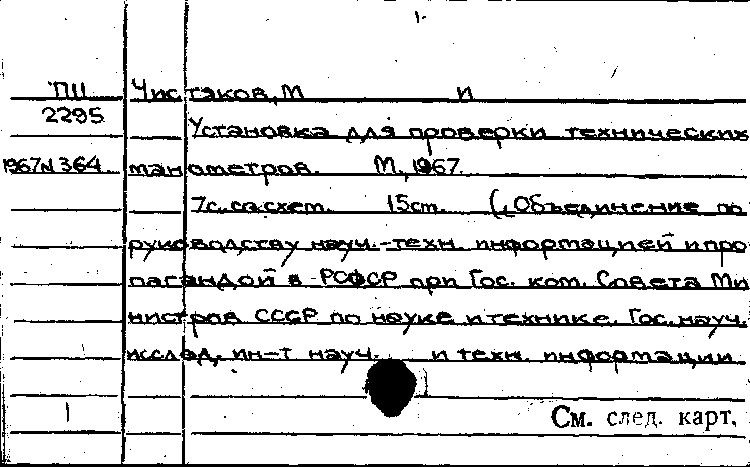 1-
ПII Чистяков, М и
2295
Установка для проверки технических
1967 N 364 манометров. М., 1967.
7с. со схем. 15 cm. (Объединение по
руководству науч.-техн. информацией и про
пагандой в РСФСР при Гос. ком. Совета Ми
нистров СССР по науке и технике. Гос. науч.
исслед. ин-т науч. и техн. информации
1 См. след. карт.